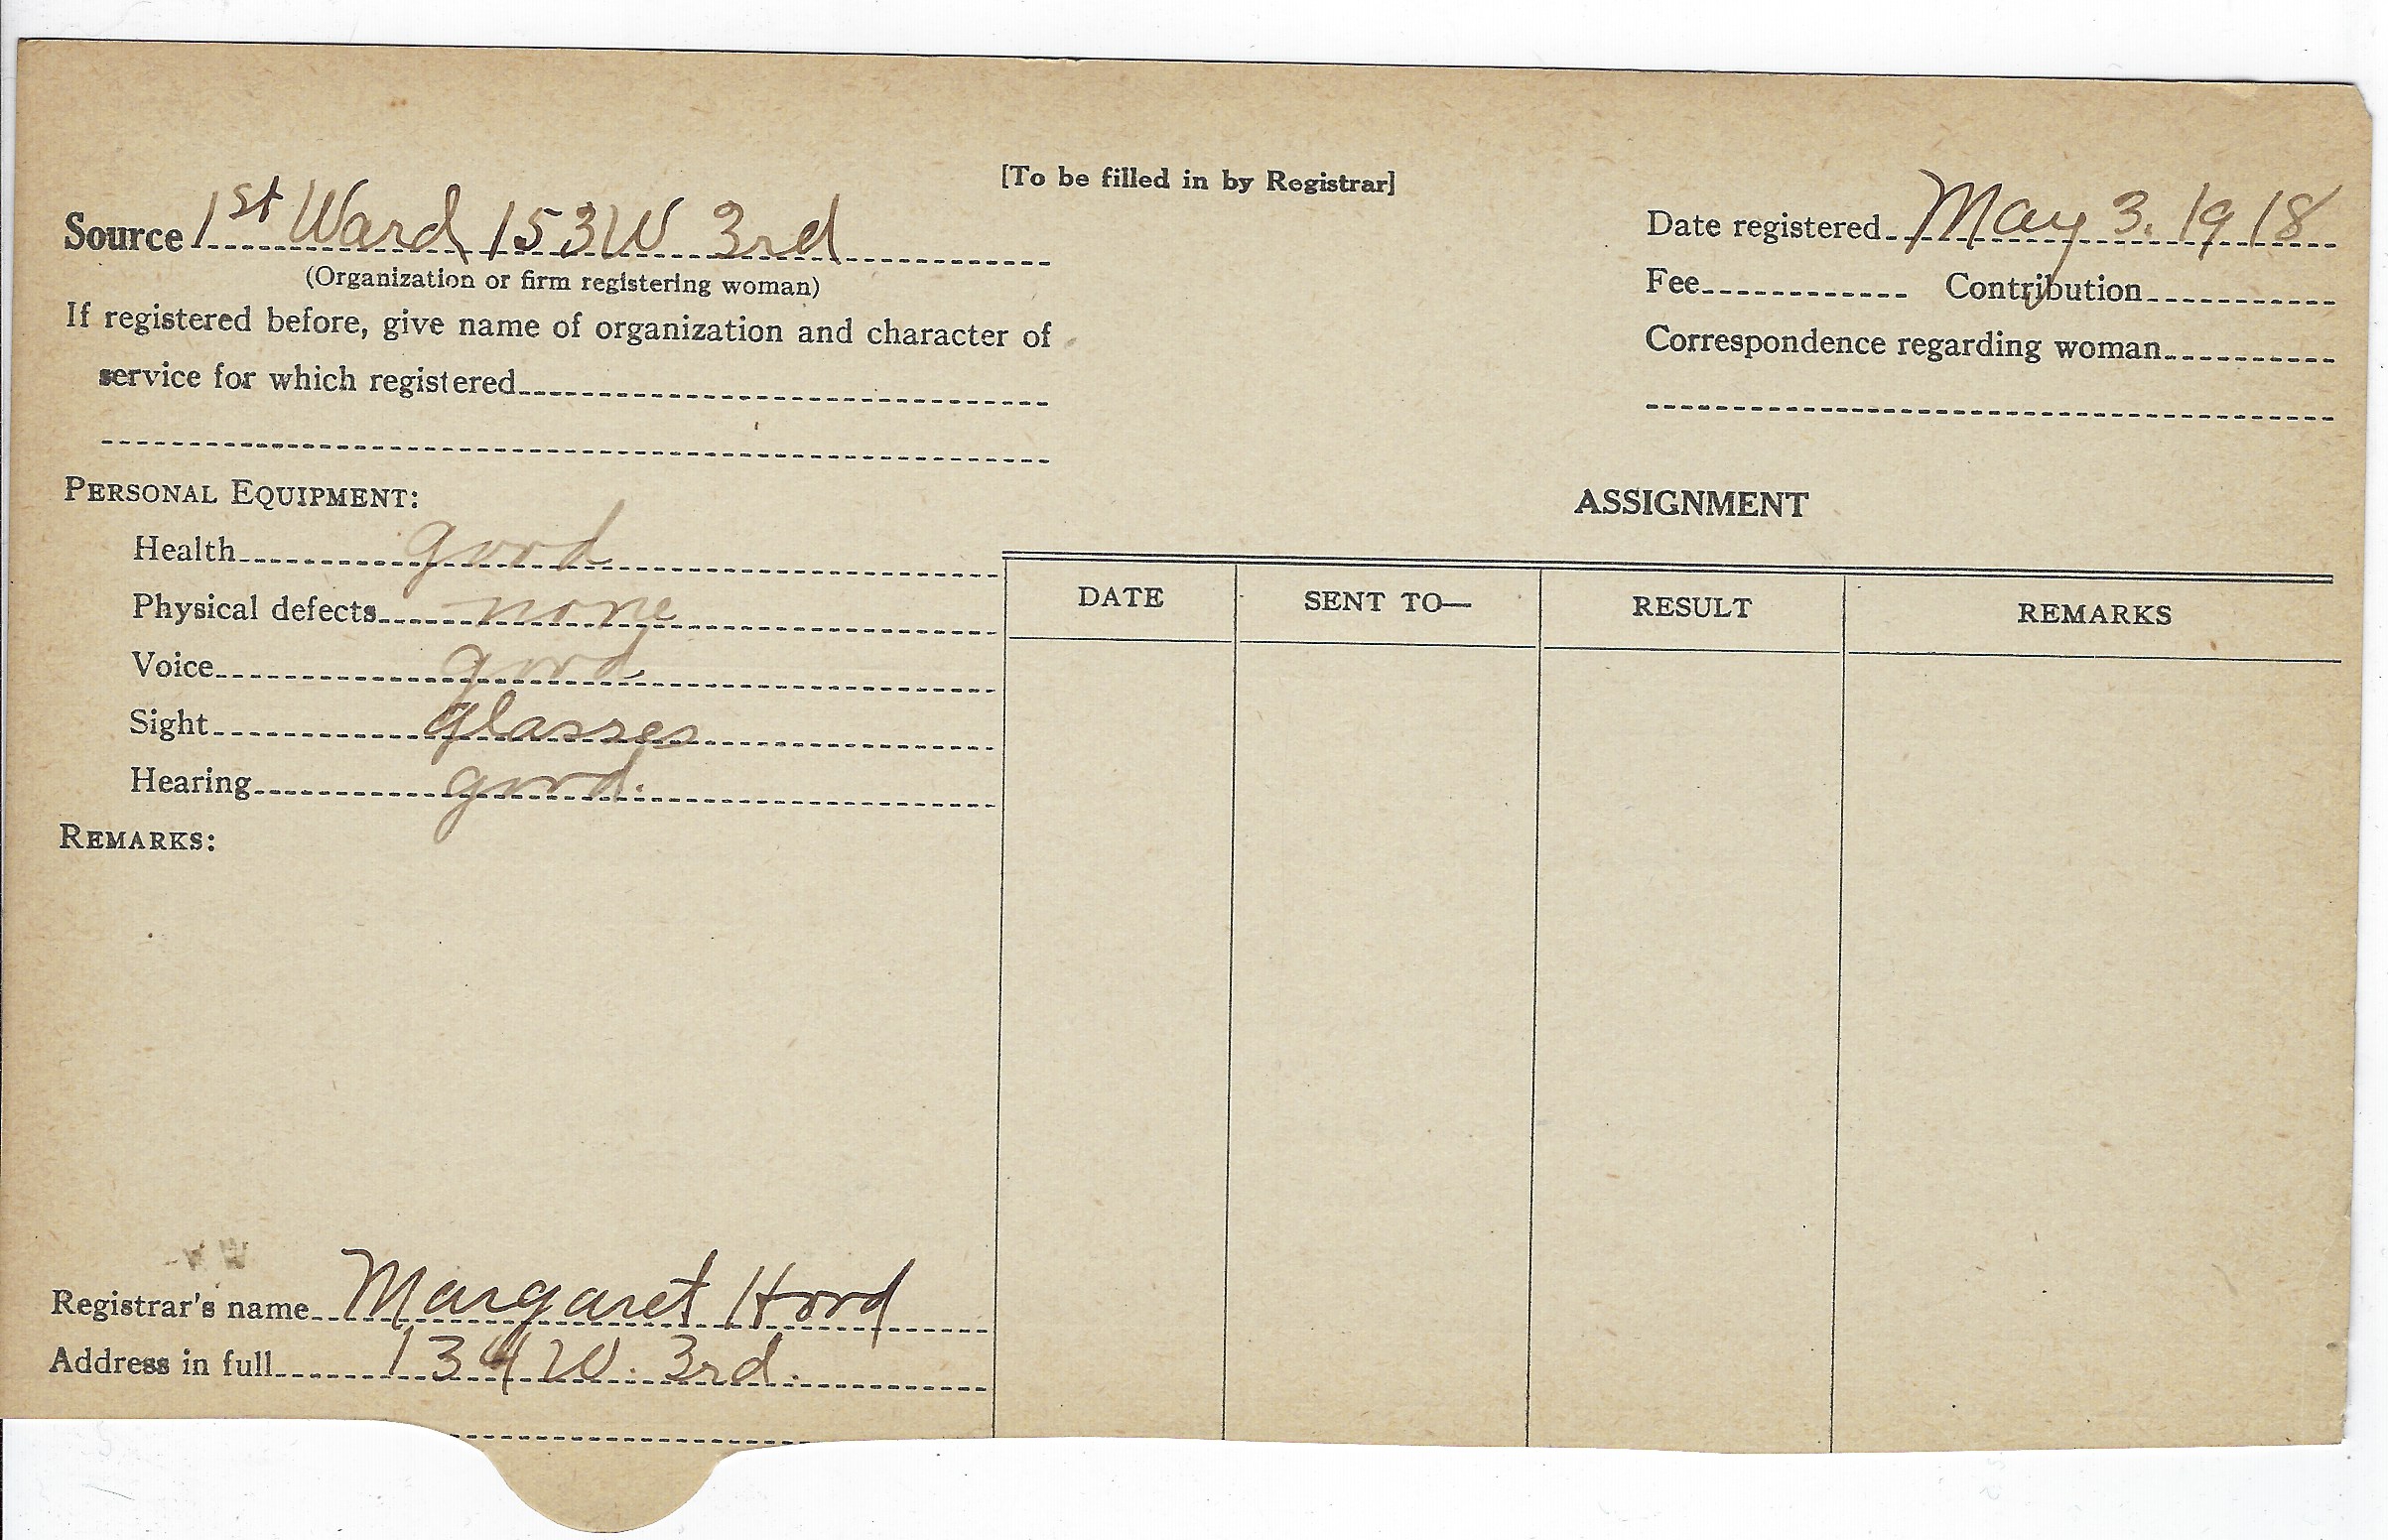 [To be filled in by Registrar]
Source 1st Ward 153 W 3rd
(Organization or firm registering woman)
If registered before, give name of organization and character of
service for which registered
Date registered May 3. 1918
Fee Contribution
Correspondence regarding woman
PERSONAL EQUIPMENT:
Health good
Physical defects none
Voice good
Sight glasses
Hearing good.
REMARKS:
Registrar's name Margaret Hord
Address in full 134 W. 3rd.
ASSIGNMENT
DATE SENT TO— RESULT REMARKS